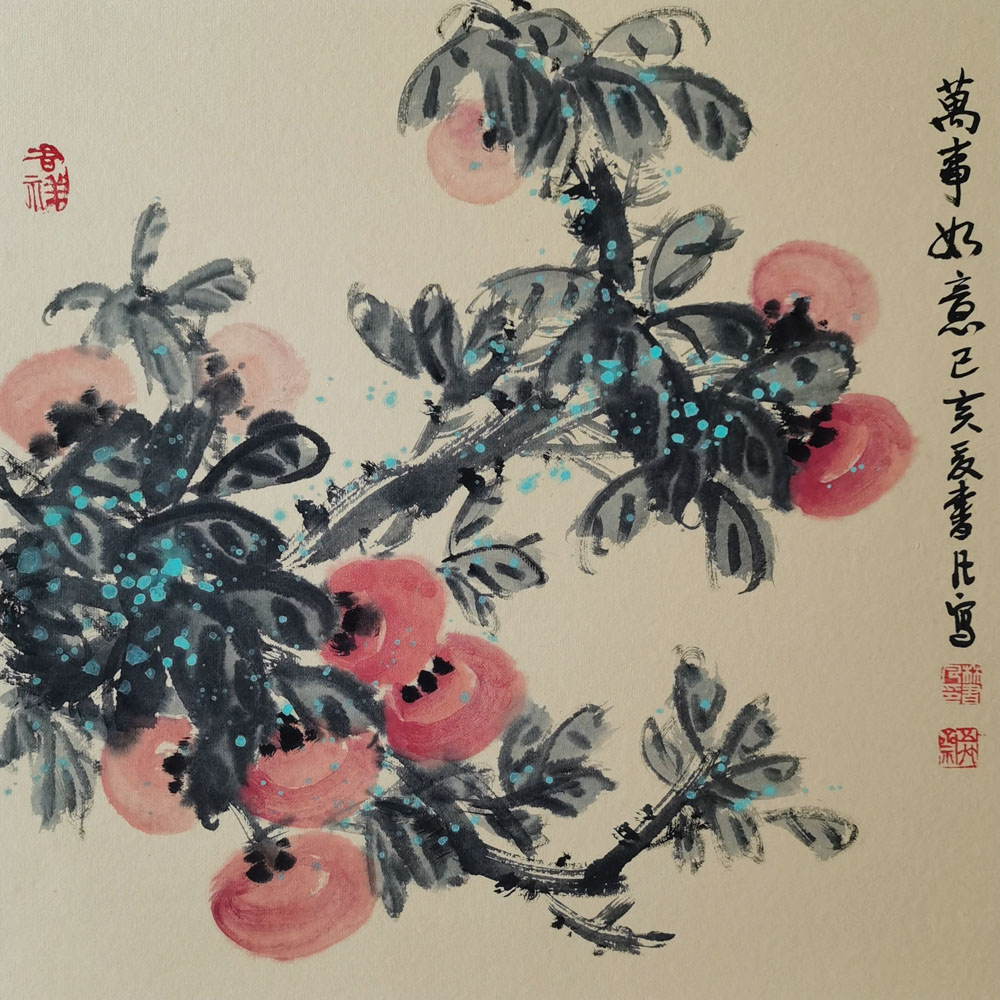 萬事如意己亥夏書凡寫